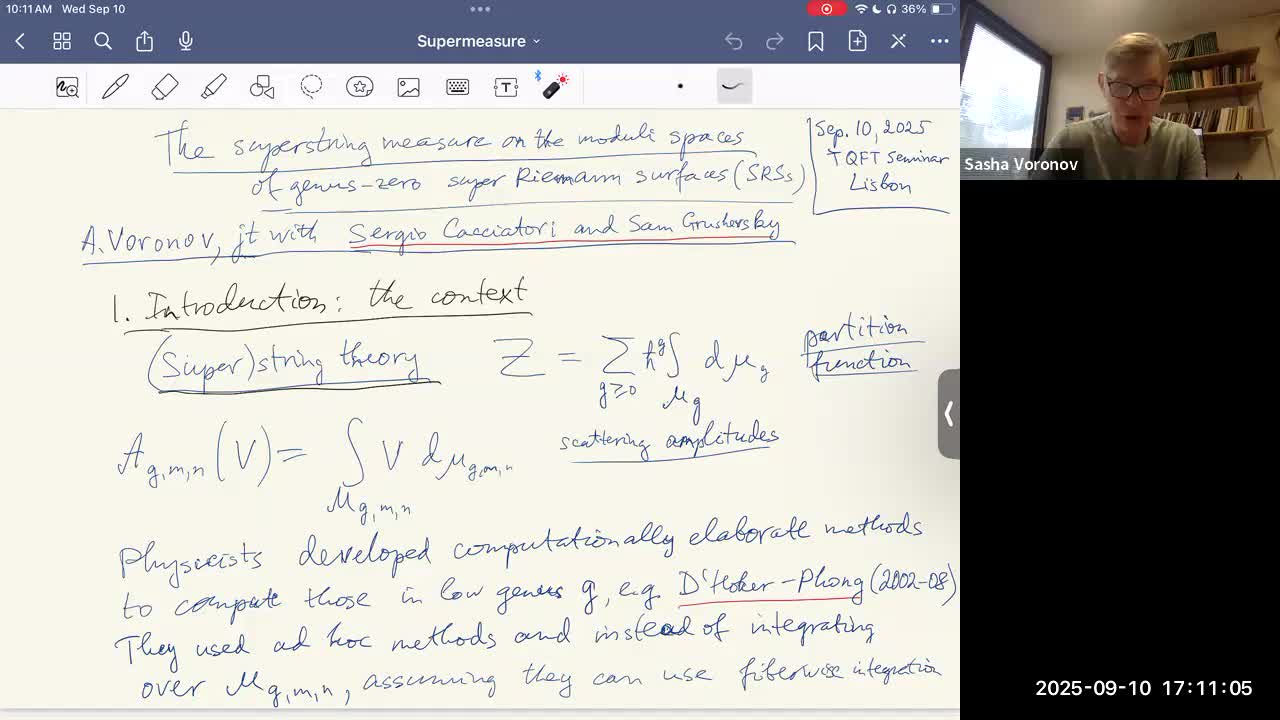 10:11 AM Wed Sep 10
36%
Supermeasure
The superstring measure on the moduli spaces
of genus-zero super Riemann surfaces (SRSs)
Sep. 10, 2025
TQFT Seminar
Lisbon
A. Voronov, jt with Sergio Cacciatori and Sam Grushevsky
1. Introduction: the context
(Super)string theory Z = ∑_{g≥0} ℏ^g ∫_{M_g} dμ_g partition function
A_{g,m,n}(V) = ∫_{M_{g,m,n}} V dμ_{g,m,n} scattering amplitudes
Physicists developed computationally elaborate methods
to compute those in low genus g, e.g. D'Hoker-Phong (2002-08)
They used ad hoc methods and instead of integrating
over M_{g,m,n}, assuming they can use fiberwise integration
Sasha Voronov
2025-09-10 17:11:05